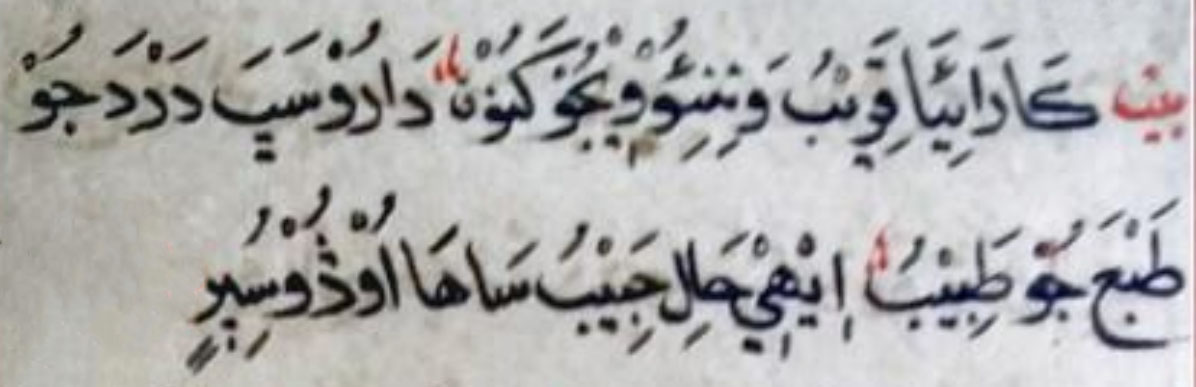 بيت كَادَائِيَا قَرِيْبُ وَنِنِئُوْ وِيْجُوْ كَنُوْنْ دَارُوْ سَيَ دَرْدَ جُوْ
طَبْعَ جُوْ طَبِيْبُ اِيْهِيْ حَالِ حَبِيْبُ سَاهَا اُوْڎُوْ سُپِرِيْ